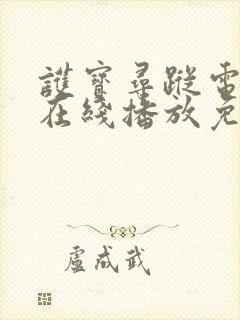 護寶尋蹤電
在綫播放免
盧成武